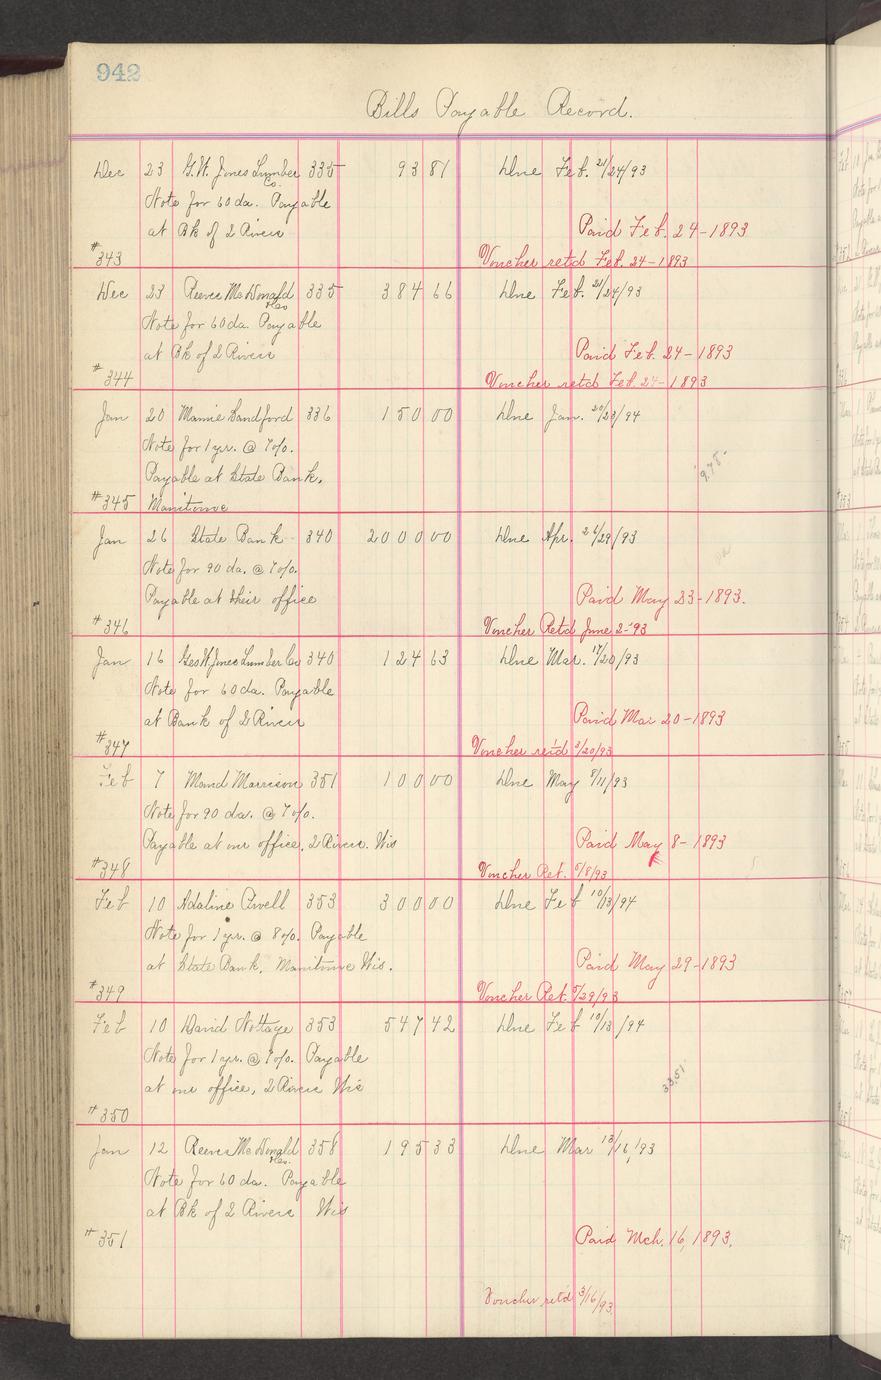 942
Bills Payable Record.
Dec 23 G.W. Jones Lumber Co. 335 93 81 Due Feb. 21/24/93
Note for 60 da. Payable
at Bk of 2 Rivers Paid Feb. 24-1893
#343 Voucher ret'd Feb. 24-1893
Dec 23 Reeves McDonald 335 384 66 Due Feb. 21/24/93
Note for 60 da. Payable
at Bk of 2 Rivers Paid Feb. 24-1893
#344 Voucher ret'd Feb. 24-1893
Jan 20 Mamie Sandford 336 150 00 Due Jan. 20/23/94
Note for 1 yr. @ 7%.
Payable at State Bank, 9.75-
#345 Manitowoc
Jan 26 State Bank 340 2000 00 Due Apr. 26/29/93
Note for 90 da. @ 7%.
Payable at their office Paid May 23-1893.
#346 Voucher Ret'd June 2-'93
Jan 16 Geo W Jones Lumber Co 340 124 63 Due Mar. 17/20/93
Note for 60 da. Payable
at Bank of 2 Rivers Paid Mar 20-1893
#347 Voucher ret'd 3/20/93
Feb 7 Maud Morrison 351 100 00 Due May 8/11/93
Note for 90 da. @ 7%.
Payable at our office, 2 Rivers. Wis Paid May 8-1893
#348 Voucher Ret. 5/8/93
Feb 10 Adaline 353 300 00 Due Feb 10/13/94
Note for 1 yr. @ 8%. Payable
at State Bank, Manitowoc Wis. Paid May 29-1893
#349 Voucher Ret. 5/29/93
Feb 10 David Nottage 353 547 42 Due Feb 10/13/94
Note for 1 yr. @ 7%. Payable
at our office, 2 Rivers Wis 33.51
#350
Jan 12 Reeves McDonald 358 195 33 Due Mar 13/16/93
Note for 60 da. Payable
at Bk of 2 Rivers Wis
#351 Paid Mch. 16, 1893.
Voucher ret'd 3/16/93